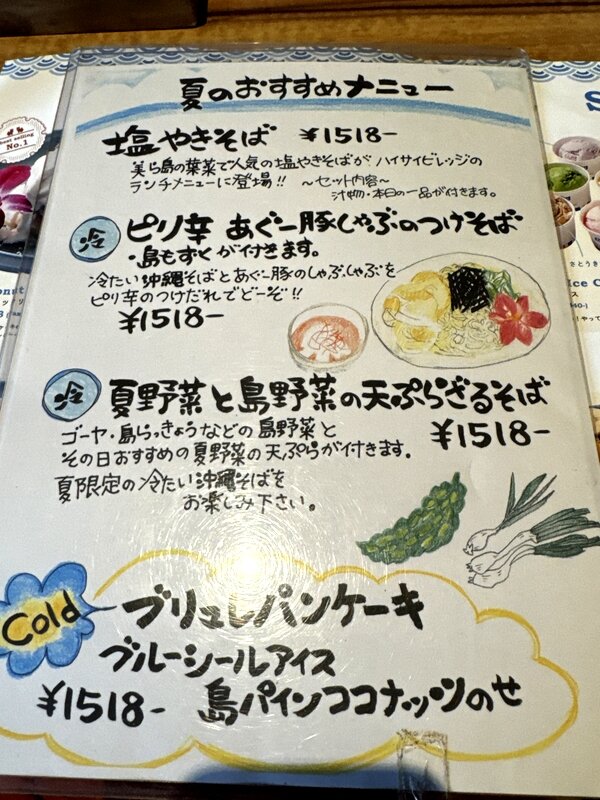 夏のおすすめメニュー
塩やきそば ¥1518-
美ら島の葉菜で人気の塩やきそばが ハイサイビレッジの
ランチメニューに登場!! 〜セット内容〜
汁物・本日の一品が付きます。
冷 ピリ辛 あぐー豚しゃぶのつけそば
・島もずくが付きます。
冷たい沖縄そばとあぐー豚のしゃぶしゃぶを
ピリ辛のつけだれでどーぞ!!
¥1518-
冷 夏野菜と島野菜の天ぷらざるそば
ゴーヤ・島らっきょうなどの島野菜と ¥1518-
その日おすすめの夏野菜の天ぷらが付きます。
夏限定の冷たい沖縄そばを
お楽しみ下さい。
Cold ブリュレパンケーキ
ブルーシールアイス
¥1518- 島パインココナッツのせ
best selling
No.1
S
さとうき
Ice C